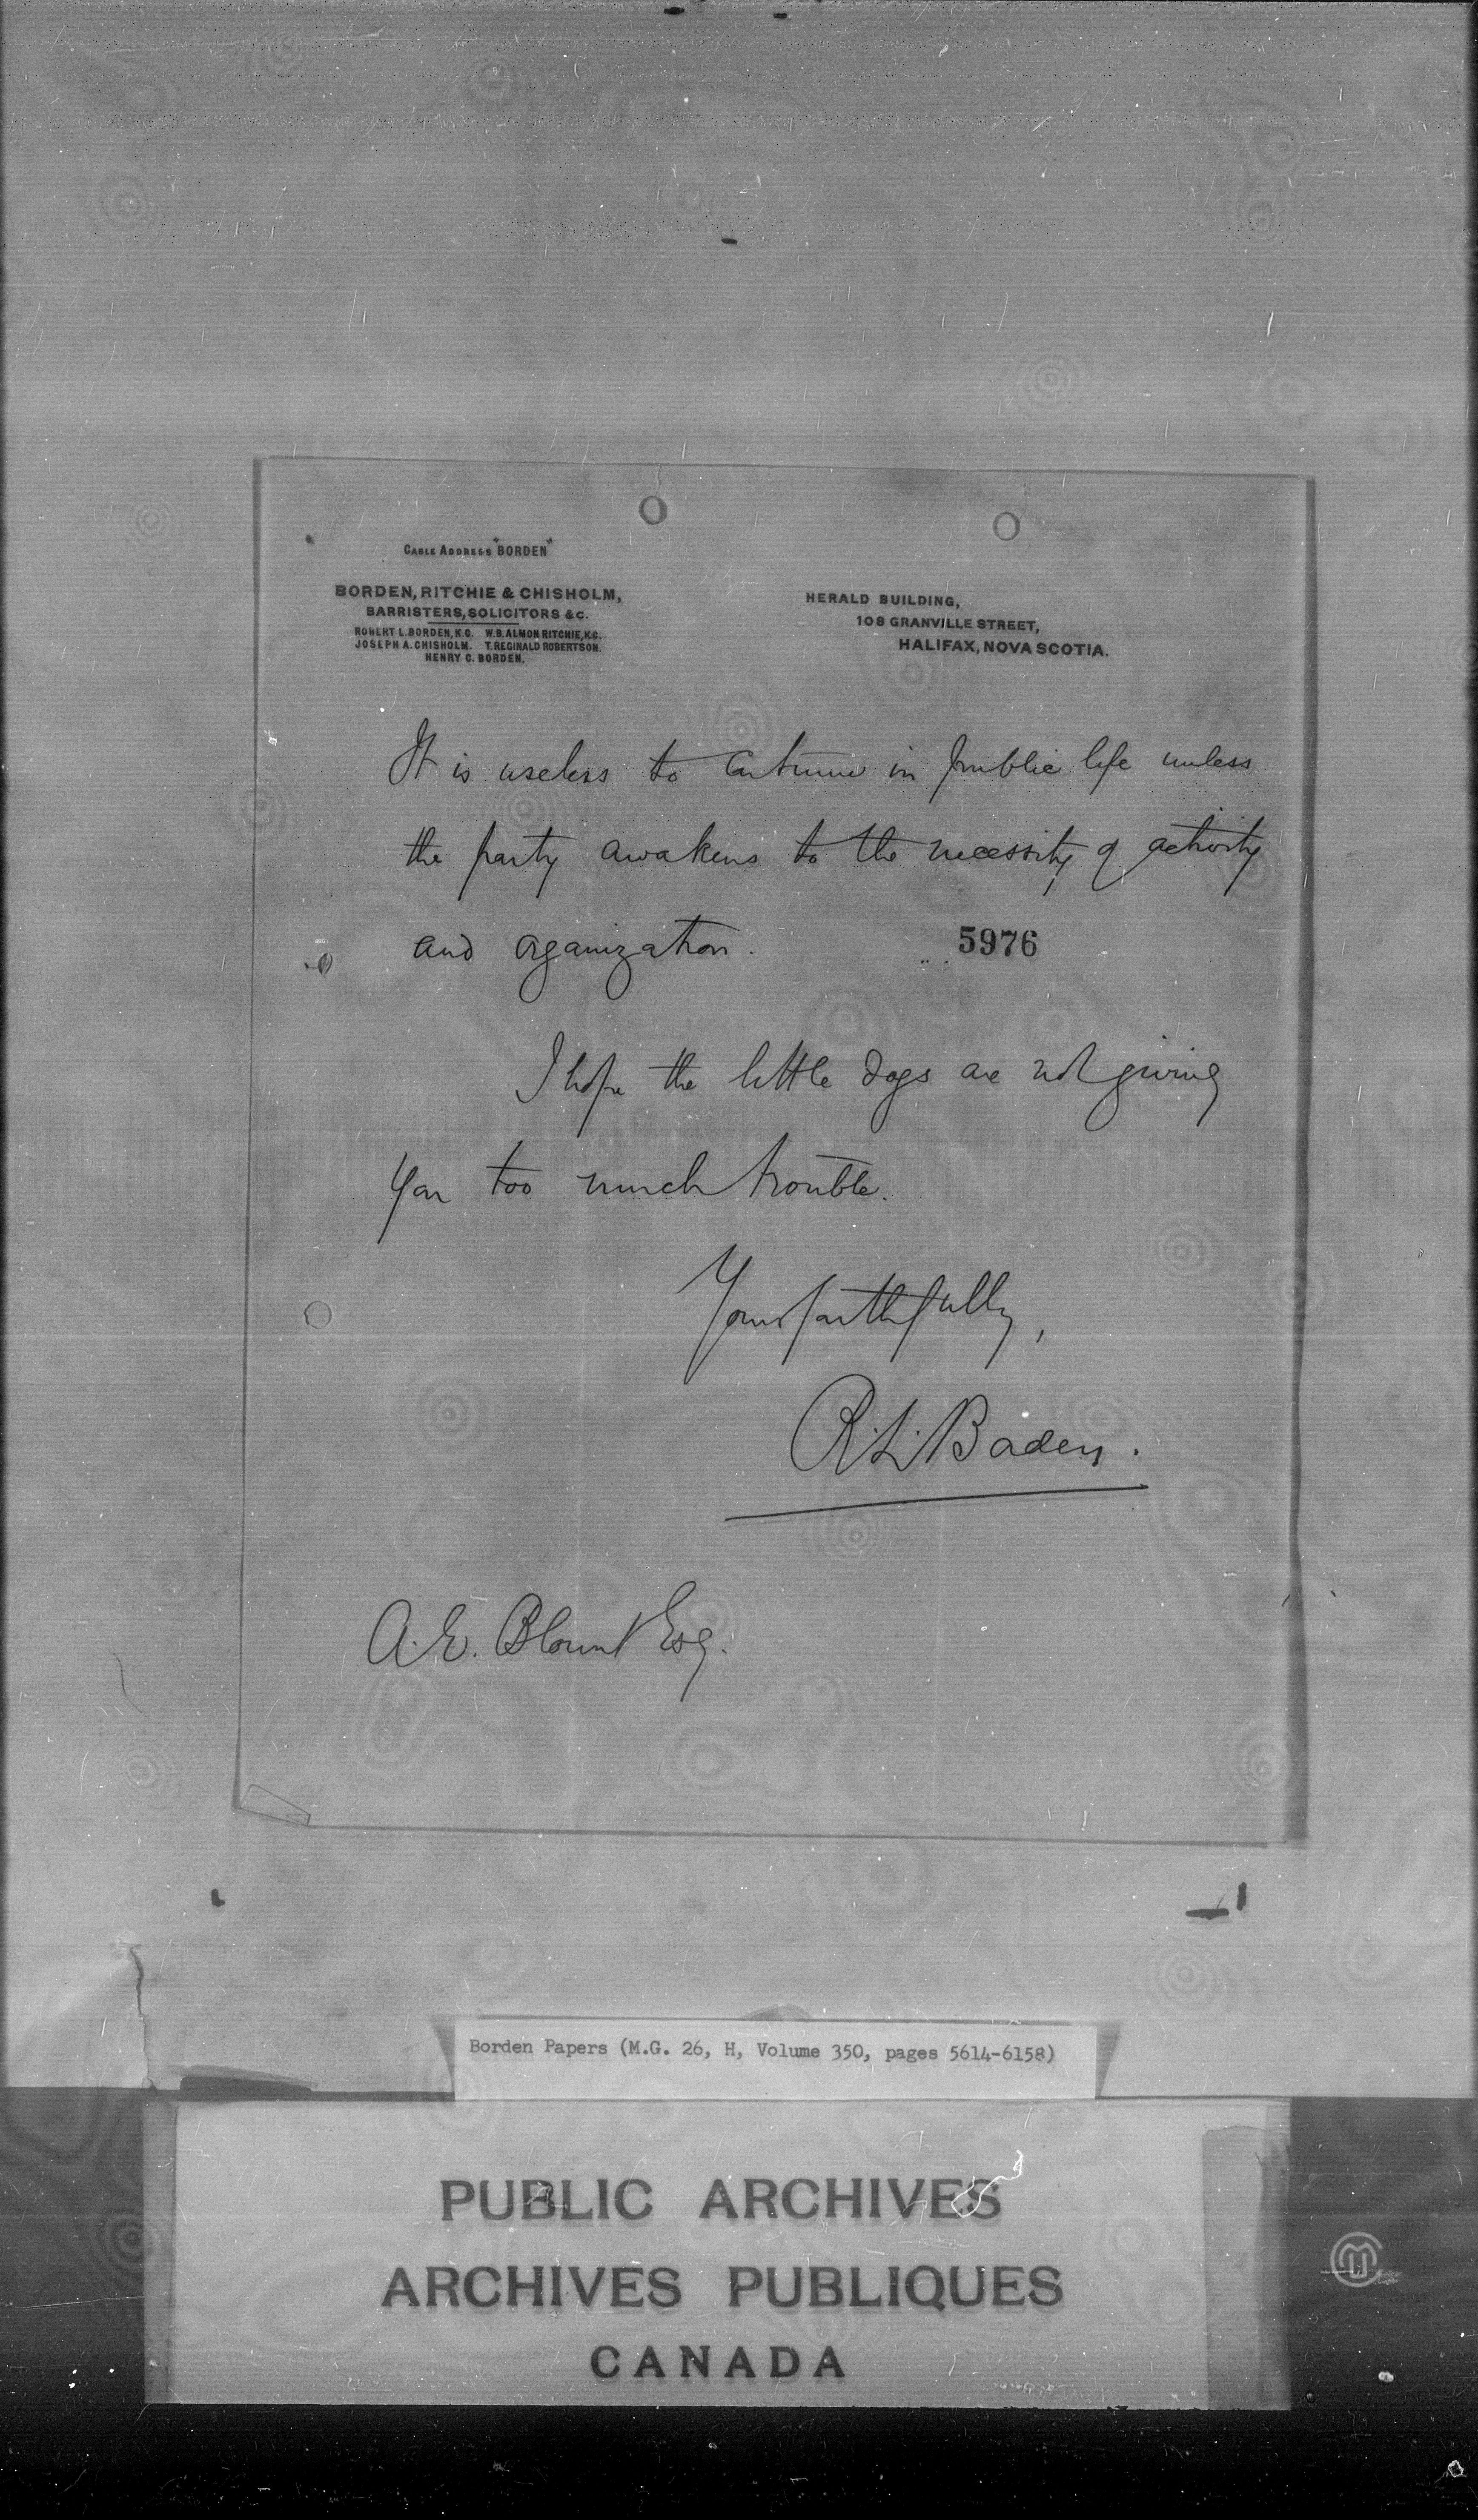 CABLE ADDRESS "BORDEN"
BORDEN, RITCHIE & CHISHOLM,
BARRISTERS, SOLICITORS &C.
ROBERT L. BORDEN, K.C. W.B. ALMON RITCHIE, K.C.
JOSEPH A. CHISHOLM. T. REGINALD ROBERTSON.
HENRY C. BORDEN.
HERALD BUILDING,
108 GRANVILLE STREET,
HALIFAX, NOVA SCOTIA.
It is useless to continue in public life unless
the party awakens to the necessity of activity
and organization.
5976
I hope the little dogs are not giving
you too much trouble.
Yours faithfully,
R. L. Borden.
A. E. Blount Esq.
Borden Papers (M.G. 26, H, Volume 350, pages 5614-6158)
PUBLIC ARCHIVES
ARCHIVES PUBLIQUES
CANADA